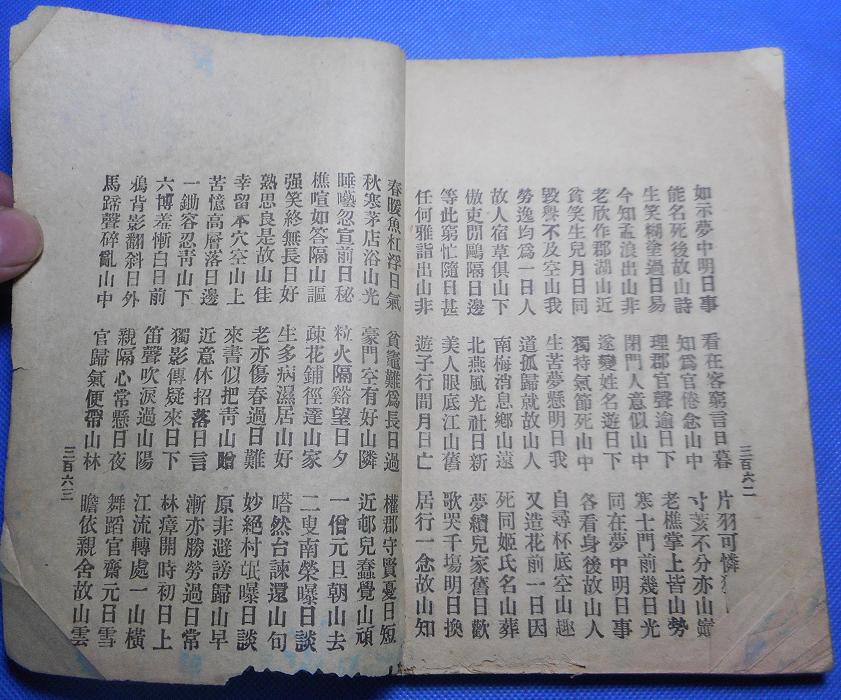 如示夢中明日事 看在客窮言日暮 片羽可憐
能名死後故山詩 知爲官倦念山中 寸荄不分亦山
生笑糊塗過日易 理郡官聲逾日下 老樵掌上皆山勢
今知孟浪出山非 閉門人意似山中 寒士門前幾日光
老欣作郡湖山近 遂變姓名遊日下 同在夢中明日事
貧笑生兒月日同 獨持氣節死山中 各看身後故山人
毀譽不及空山我 生苦夢懸明日我 自尋杯底空山趣
勞逸均爲一日人 道孤歸就故山人 又造花前一日因
故人宿草俱山下 南梅消息鄉山遠 死同姬氏名山葬
傲吏閒鷗隔日邊 北燕風光社日新 夢續兒家舊日歡
等此窮忙隨日甚 美人眼底江山舊 歌哭千場明日換
任何雅詣出山非 遊子行間月日亡 居行一念故山知
三百六二
春暖魚杠浮日氣 貧竈難爲長日過 權郡守賢憂日短
秋寒茅店浴山光 豪門空有好山隣 近邨兒蠢覺山頑
睡囈忽宣前日秘 粒火隔谿望日夕 一僧元旦朝山去
樵喧如答隔山謳 疎花鋪徑達山家 二叟南榮曝日談
强笑終無長日好 生多病濕居山好 嗒然台諫還山句
熟思良是故山佳 老亦傷春過日難 妙絕村氓曝日談
幸留本穴空山上 來書似把靑山贈 原非避謗歸山早
苦憶高層落日邊 近意休招落日言 漸亦勝勞過日常
一鋤容忍靑山下 獨影傳疑來日下 林瘴開時初日上
六博羞慚白日前 笛聲吹淚過山陽 江流轉處一山橫
鴉背影翻斜日外 親隔心常懸日夜 舞蹈官齋元日雪
馬蹄聲碎亂山中 官歸氣便帶山林 瞻依親舍故山雲
三百六三